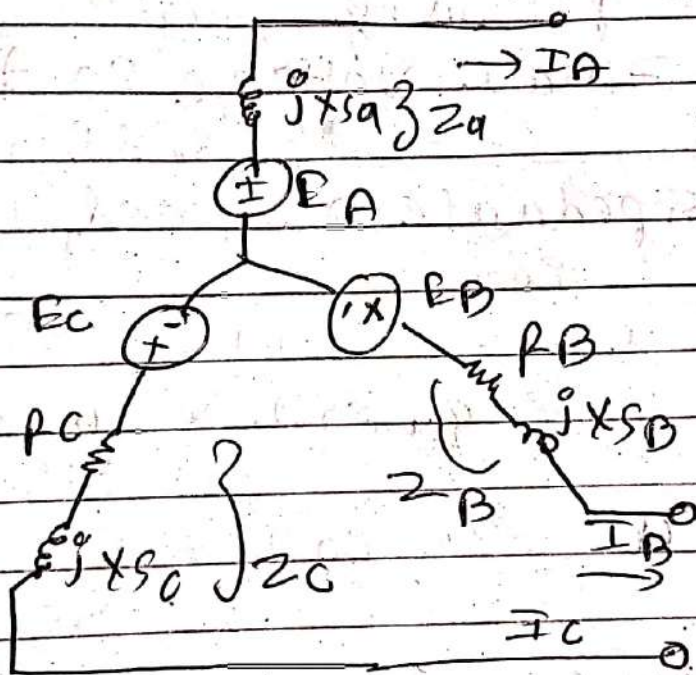 → IA
jxsa } Za
EA
EC
EB
RB
RC
jXSB
ZB
IB
jXSC } ZC
IC